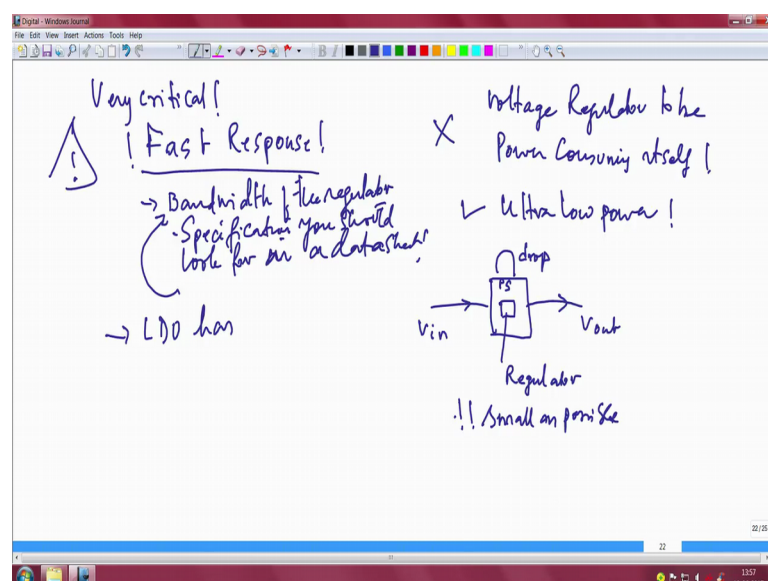 Digital - Windows Journal
File Edit View Insert Actions Tools Help
Very critical!
! Fast Response!
!
→ Bandwidth of the regulator
- Specification you should
look for in a datasheet!
→ LDO has
X Voltage Regulator to be
Power Consuming itself!
✓ Ultra low power!
drop
PS
Vin
Vout
Regulator
!! Small as possible
22/25
22
13:57